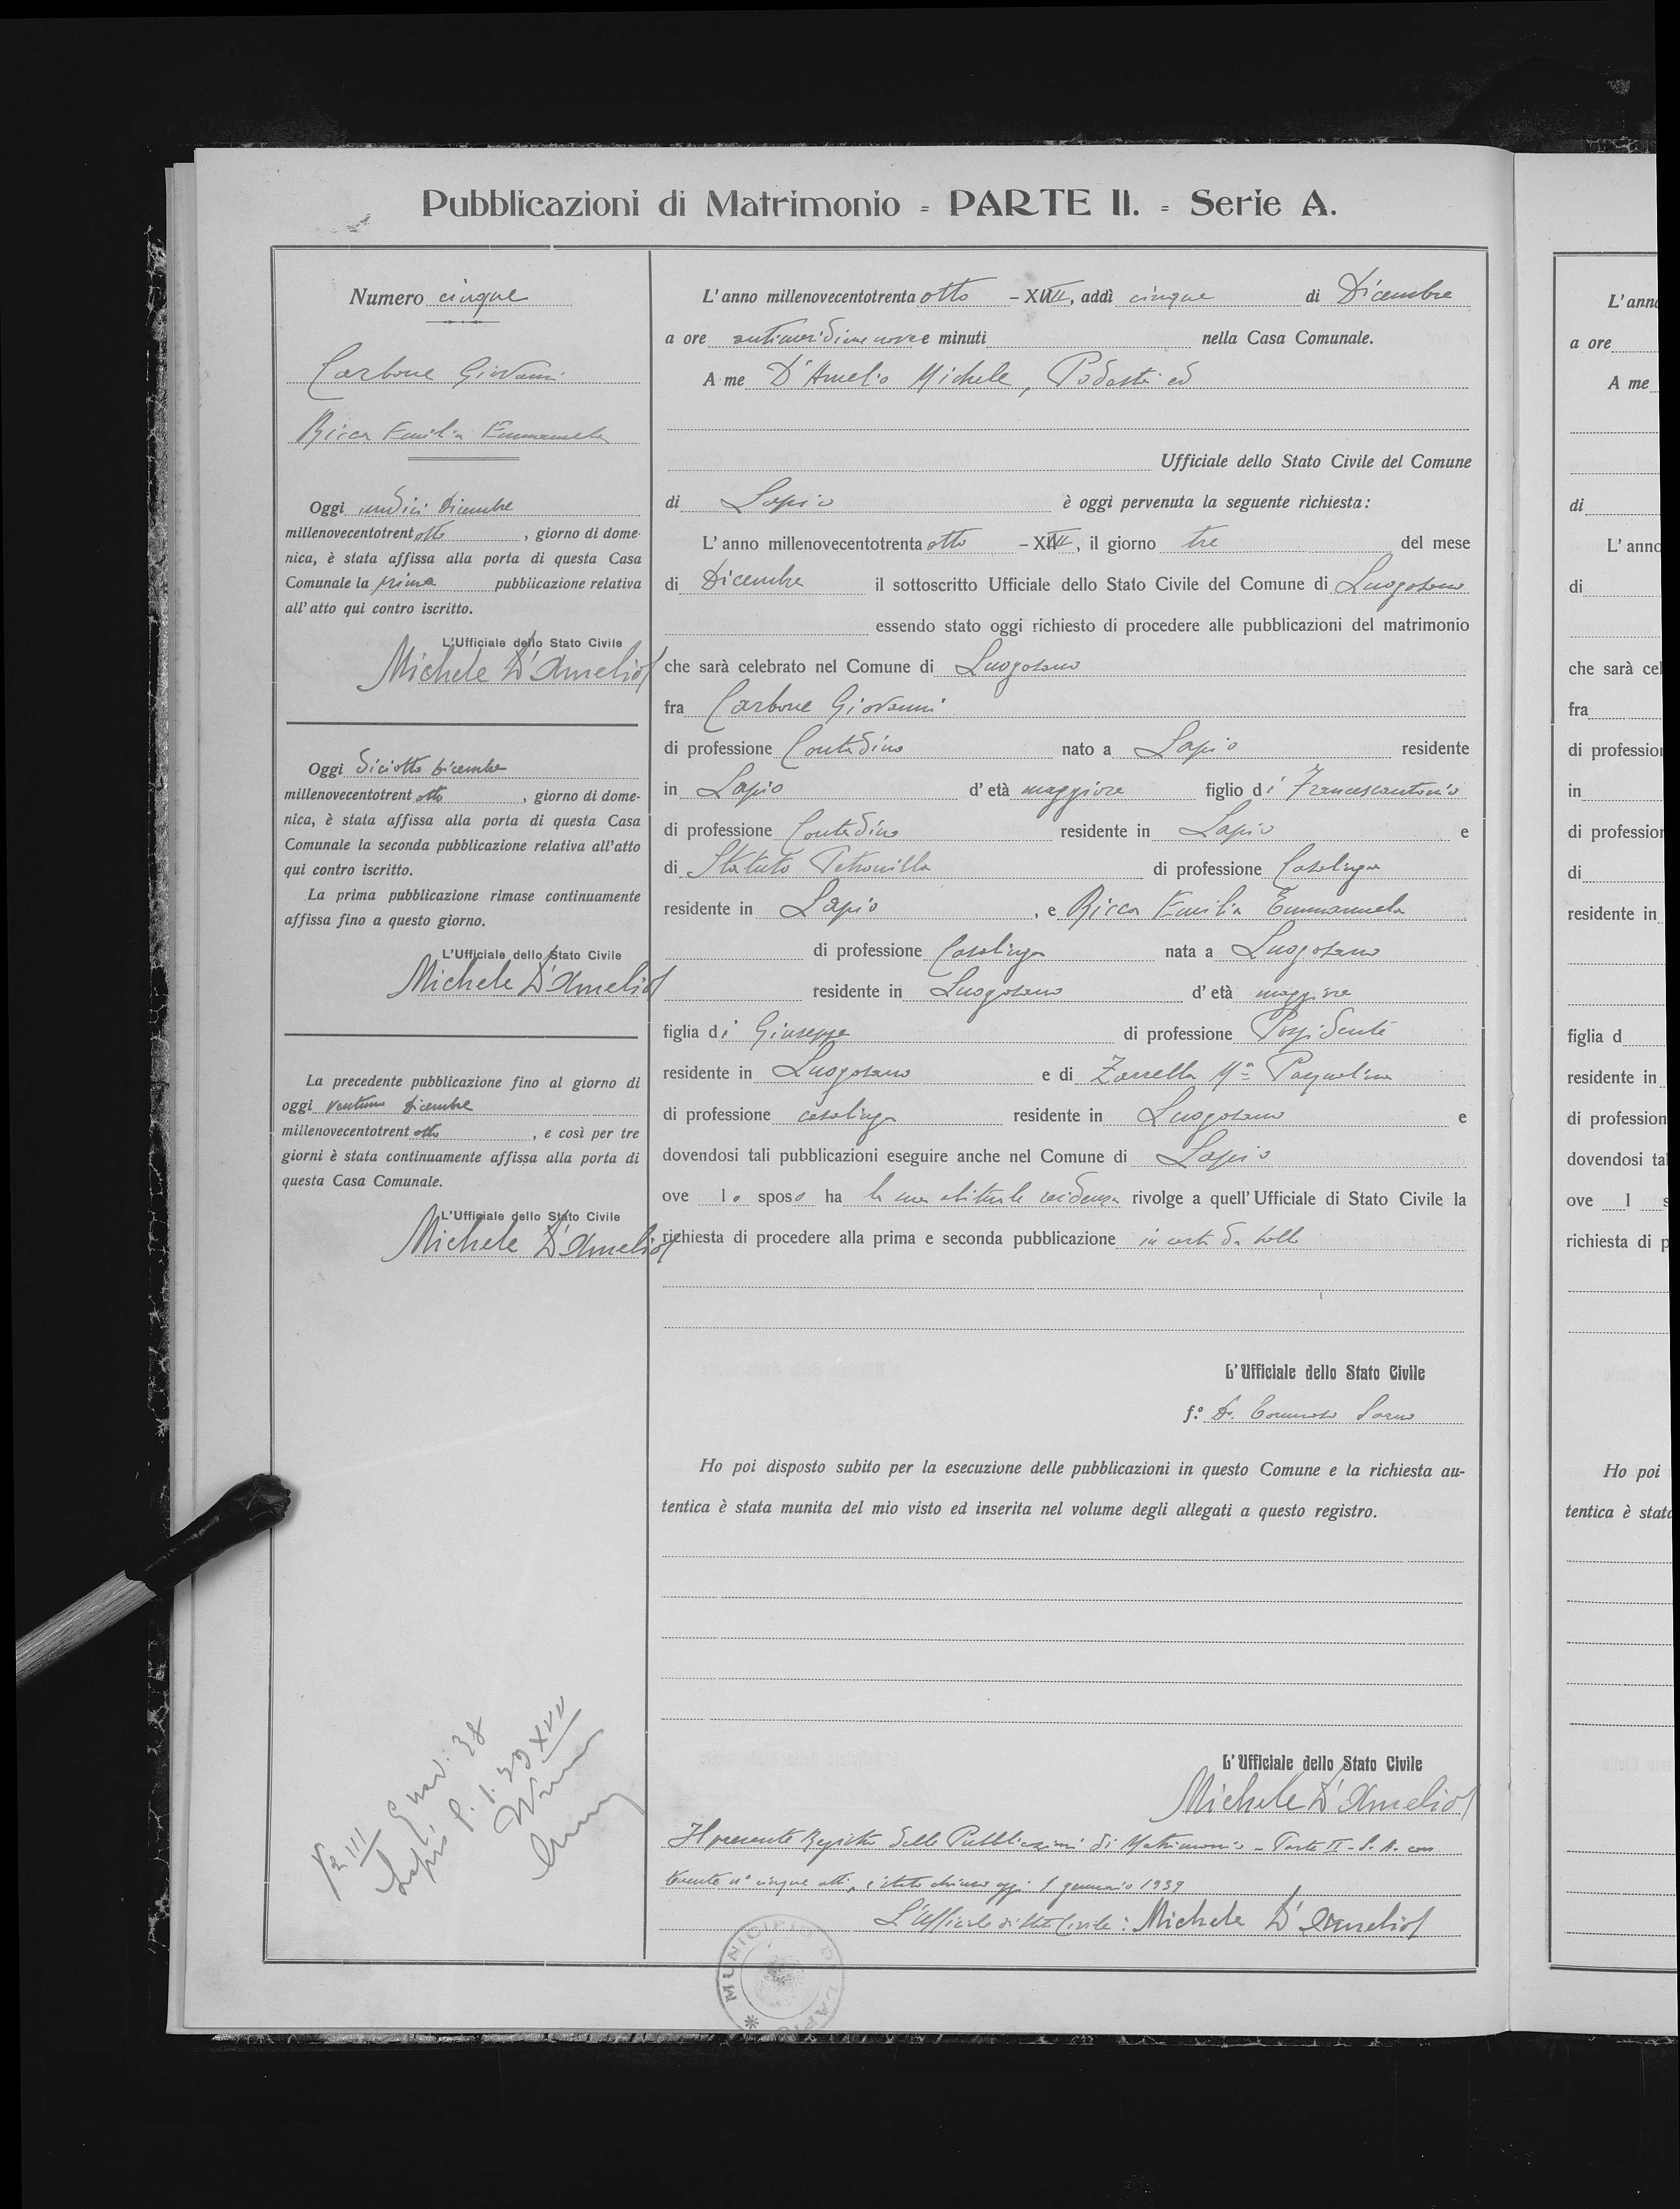 Pubblicazioni di Matrimonio = PARTE II. = Serie A.
Numero cinque
Carbone Giovanni
Ricca Emilia Emmanuela
Oggi undici Dicembre
millenovecentotrent otto , giorno di dome-
nica, è stata affissa alla porta di questa Casa
Comunale la prima pubblicazione relativa
all' atto qui contro iscritto.
L'Ufficiale dello Stato Civile
Michele D'Amelio
Oggi diciotto Dicembre
millenovecentotrent otto , giorno di dome-
nica, è stata affissa alla porta di questa Casa
Comunale la seconda pubblicazione relativa all'atto
qui contro iscritto.
La prima pubblicazione rimase continuamente
affissa fino a questo giorno.
L'Ufficiale dello Stato Civile
Michele D'Amelio
La precedente pubblicazione fino al giorno di
oggi ventuno Dicembre
millenovecentotrent otto , e così per tre
giorni è stata continuamente affissa alla porta di
questa Casa Comunale.
L'Ufficiale dello Stato Civile
Michele D'Amelio
L' anno millenovecentotrenta otto - XVII, addì cinque di Dicembre
a ore antimeridiane nove e minuti nella Casa Comunale.
A me D'Amelio Michele, Podestà ed
Ufficiale dello Stato Civile del Comune
di Lapio è oggi pervenuta la seguente richiesta:
L' anno millenovecentotrenta otto - XVII, il giorno tre del mese
di Dicembre il sottoscritto Ufficiale dello Stato Civile del Comune di Luogosano
essendo stato oggi richiesto di procedere alle pubblicazioni del matrimonio
che sarà celebrato nel Comune di Luogosano
fra Carbone Giovanni
di professione Contadino nato a Lapio residente
in Lapio d' età maggiore figlio di Francescantonio
di professione Contadino residente in Lapio e
di Statuto Petronilla di professione Casalinga
residente in Lapio , e Ricca Emilia Emmanuela
di professione Casalinga nata a Luogosano
residente in Luogosano d' età maggiore
figlia di Giuseppe di professione Possidente
residente in Luogosano e di Zarrella Mª Pasqualina
di professione casalinga residente in Luogosano e
dovendosi tali pubblicazioni eseguire anche nel Comune di Lapio
ove lo sposo ha la sua abituale residenza rivolge a quell' Ufficiale di Stato Civile la
richiesta di procedere alla prima e seconda pubblicazione in carta da bollo
L' Ufficiale dello Stato Civile
f.º
Ho poi disposto subito per la esecuzione delle pubblicazioni in questo Comune e la richiesta au-
tentica è stata munita del mio visto ed inserita nel volume degli allegati a questo registro.
L' Ufficiale dello Stato Civile
Michele D'Amelio
Il presente Registro delle Pubblicazioni di Matrimonio - Parte II - S. A. con
tenente nº cinque atti, è stato chiuso oggi 1 gennaio 1939
L'Ufficiale di Stato Civile: Michele D'Amelio
MUNICIPIO DI LAPIO
L' ann
a ore
A me
di
L' anno
di
che sarà cel
fra
di profession
in
di profession
di
residente in
figlia d
residente in
di profession
dovendosi tal
ove l s
richiesta di p
Ho poi
tentica è stat